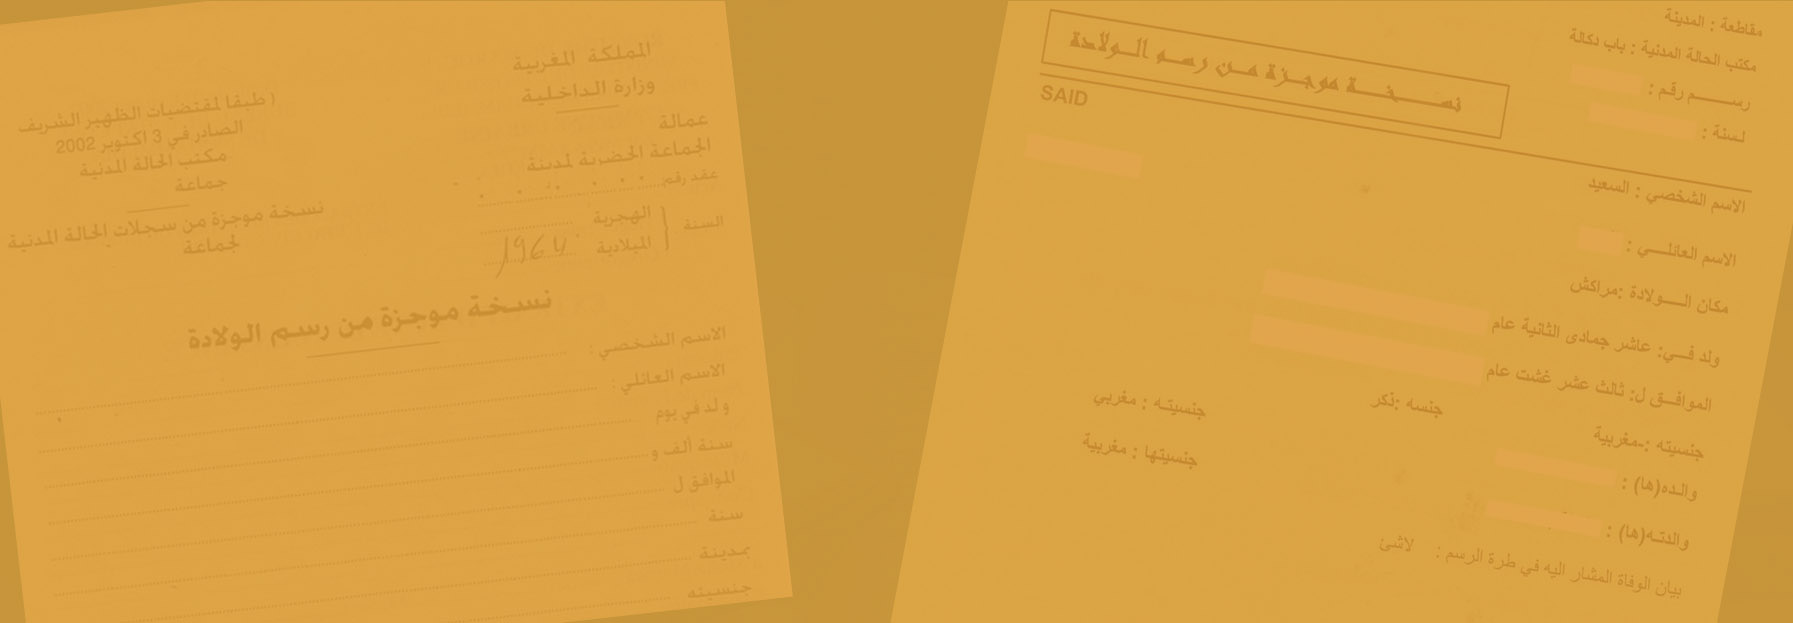 المملكة المغربية
وزارة الداخلية
عمالة
الجماعة الحضرية لمدينة
عقد رقم:
السنة
الهجرية
الميلادية 1964
( طبقا لمقتضيات الظهير الشريف
الصادر في 3 اكتوبر 2002
مكتب الحالة المدنية
جماعة
نسخة موجزة من سجلات الحالة المدنية
لجماعة
نسخة موجزة من رسم الولادة
الاسم الشخصي :
الاسم العائلي :
ولد في يوم
سنة ألف و
الموافق ل
سنة
بمدينة
جنسيته
مقاطعة : المدينة
مكتب الحالة المدنية : باب دكالة
رسم رقم :
لسنة :
نسخة موجزة من رسم الولادة
SAID
الاسم الشخصي : السعيد
الاسم العائلي :
مكان الولادة :مراكش
ولد في: عاشر جمادى الثانية عام
الموافق ل: ثالث عشر غشت عام
جنسيته :-مغربية جنسه :ذكر جنسيته : مغربي
والده(ها) : جنسيتها : مغربية
والدته(ها) :
بيان الوفاة المشار اليه في طرة الرسم : لاشئ